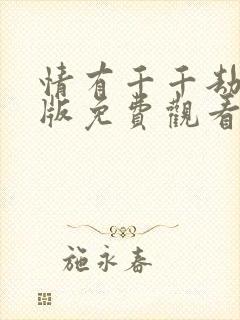 情有千千劫
版免費觀看
施永春